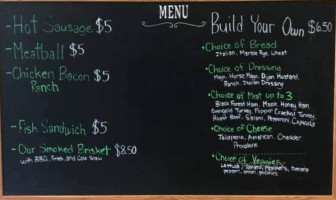 MENU
- Hot Sausage $5
- Meatball $5
- Chicken Bacon $5
Ranch
- Fish Sandwich $5
- Our Smoked Brisket $8.50
with BBQ, Fries, and Cole Slaw
Build Your Own $6.50
• Choice of Bread
Italian, Marble Rye, Wheat
• Choice of Dressing
Mayo, Horsey Mayo, Dijon Mustard,
Ranch, Italian Dressing
• Choice of Meat up to 3
Black Forest Ham, Maple Honey Ham,
Turkey, Cracked Turkey,
Roast Beef, Salami, Pepperoni, Capicola
• Choice of Cheese
Jalapeno, American, Cheddar,
Provolone
• Choice of Veggies
Lettuce, Tomato
onion, pickles